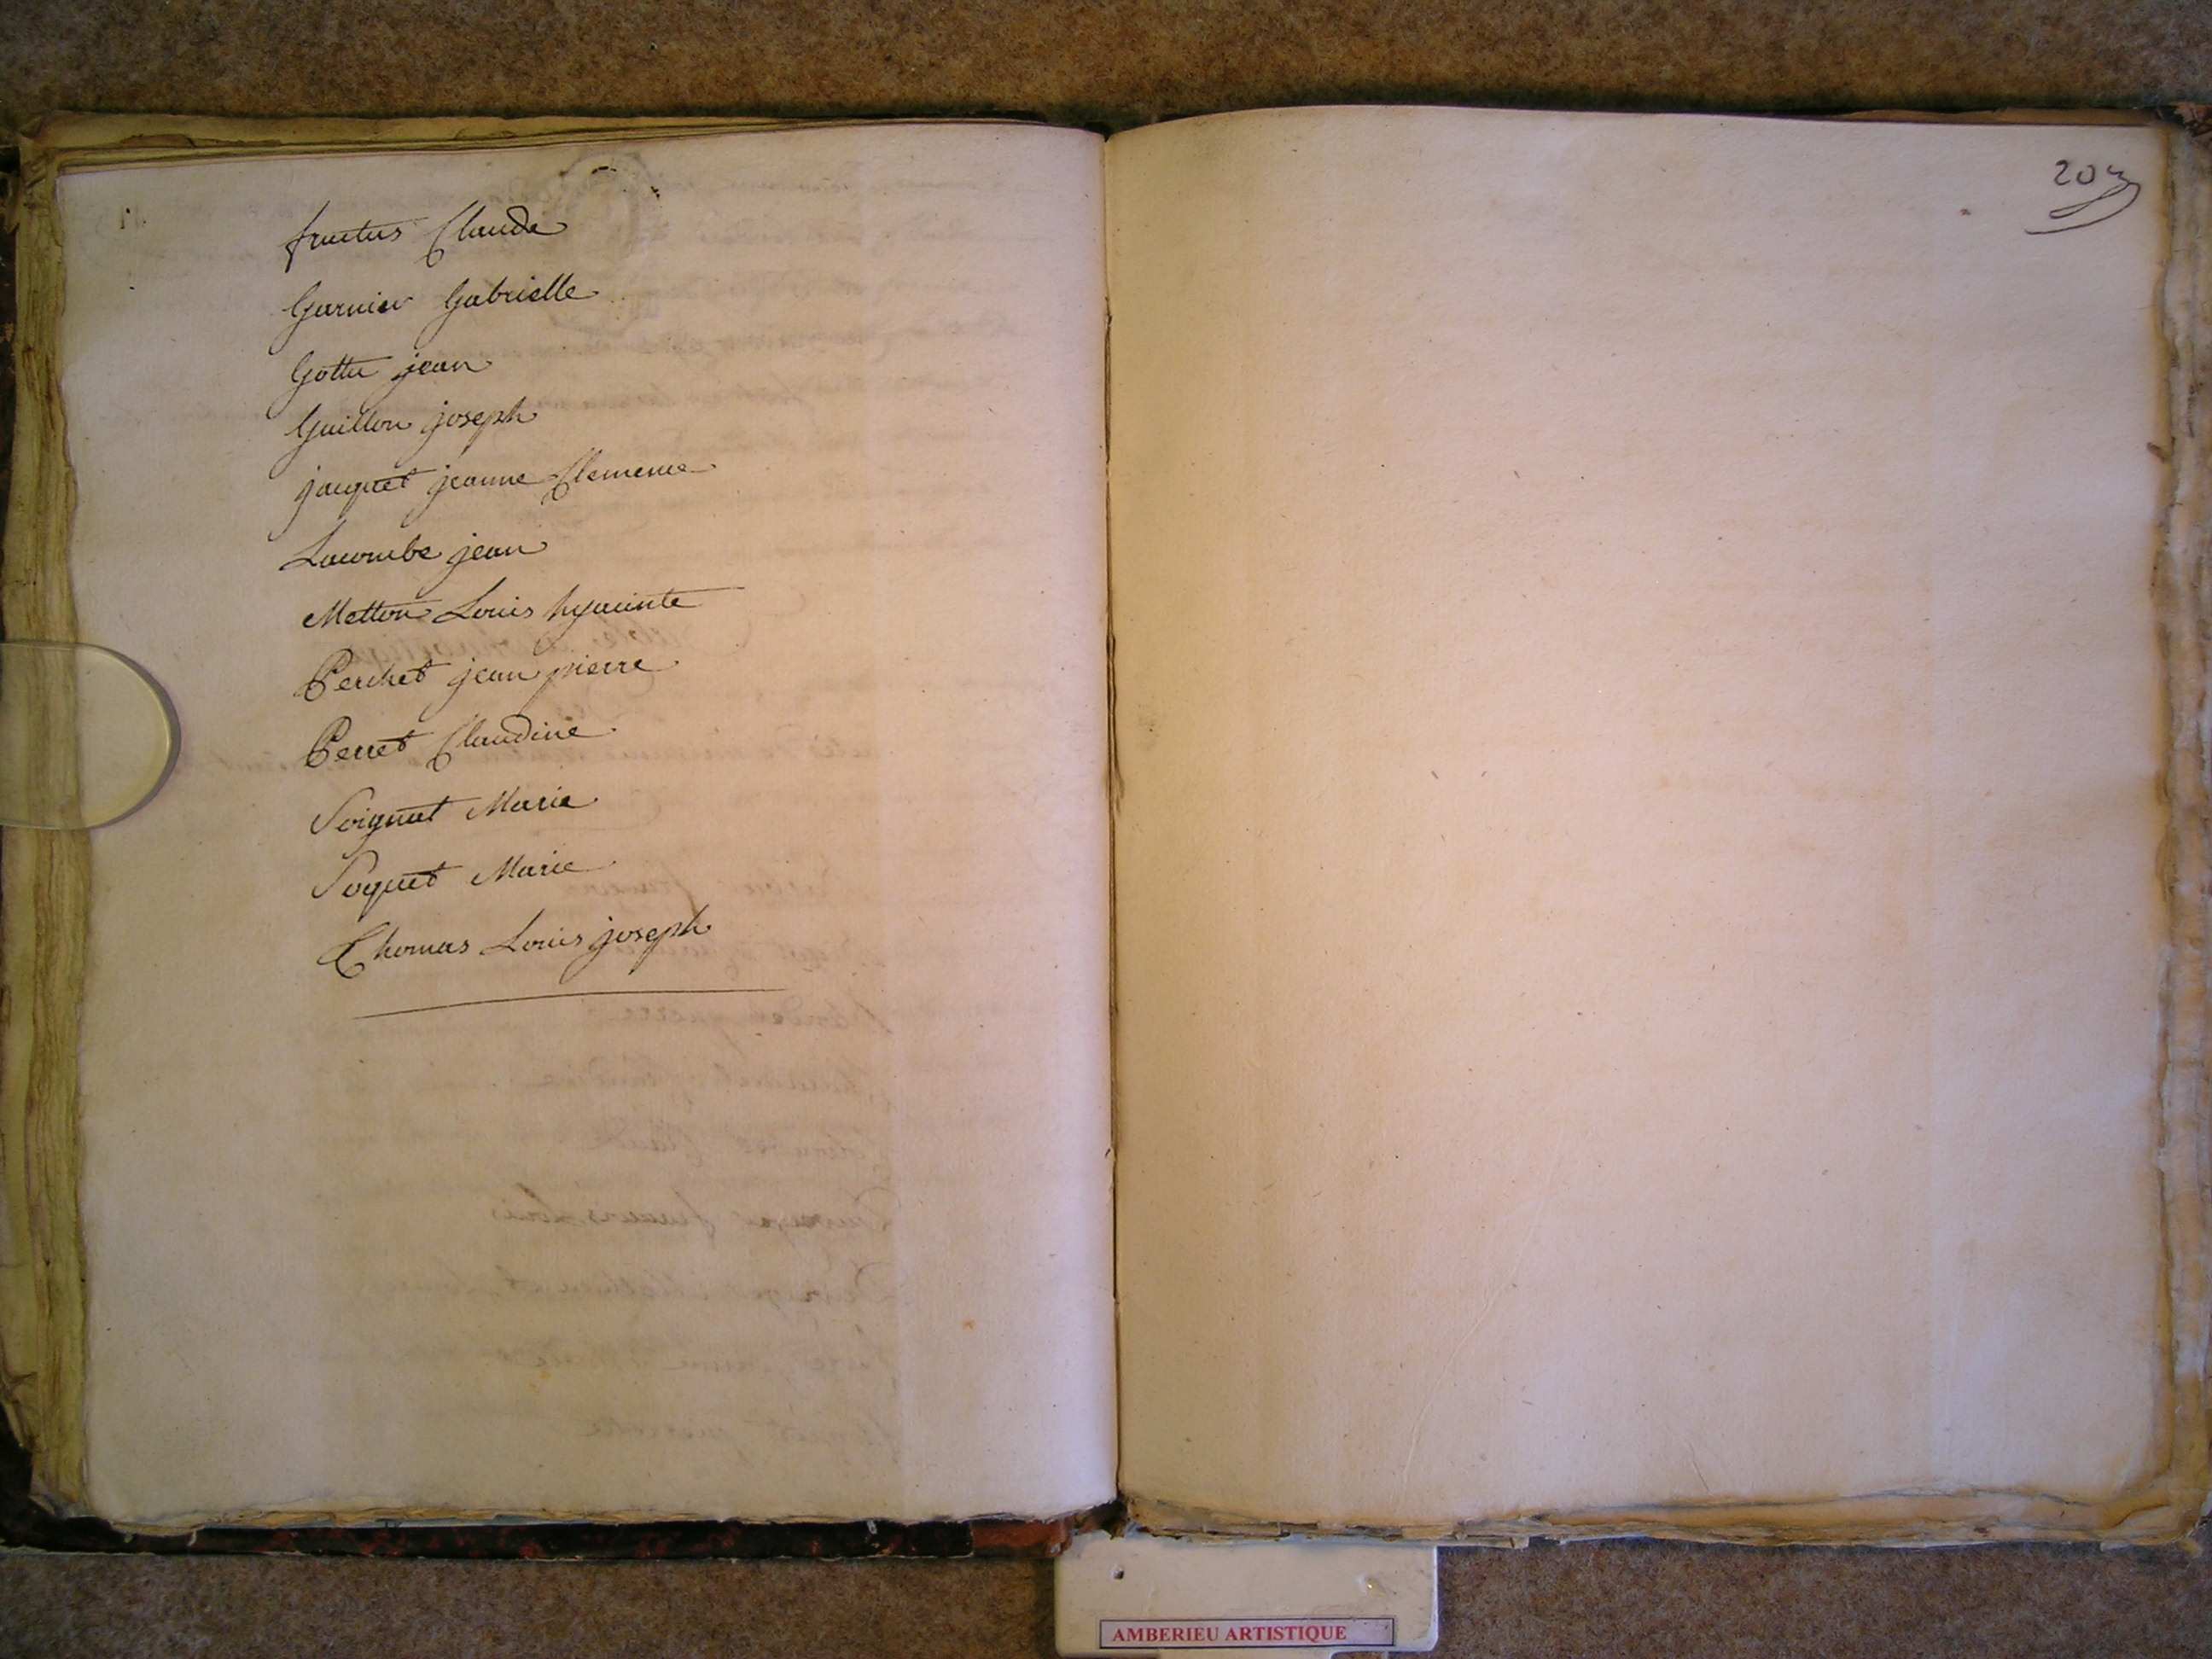 fructus Claude
Garnier Gabrielle
Gottu jean
Guillon joseph
jacquet jeanne Clemence
Lacombe jean
Metton Louis hyacinte
Perchet jean pierre
Perret Claudine
Soignat Marie
Soquet Marie
Thomas Louis joseph
AMBERIEU ARTISTIQUE